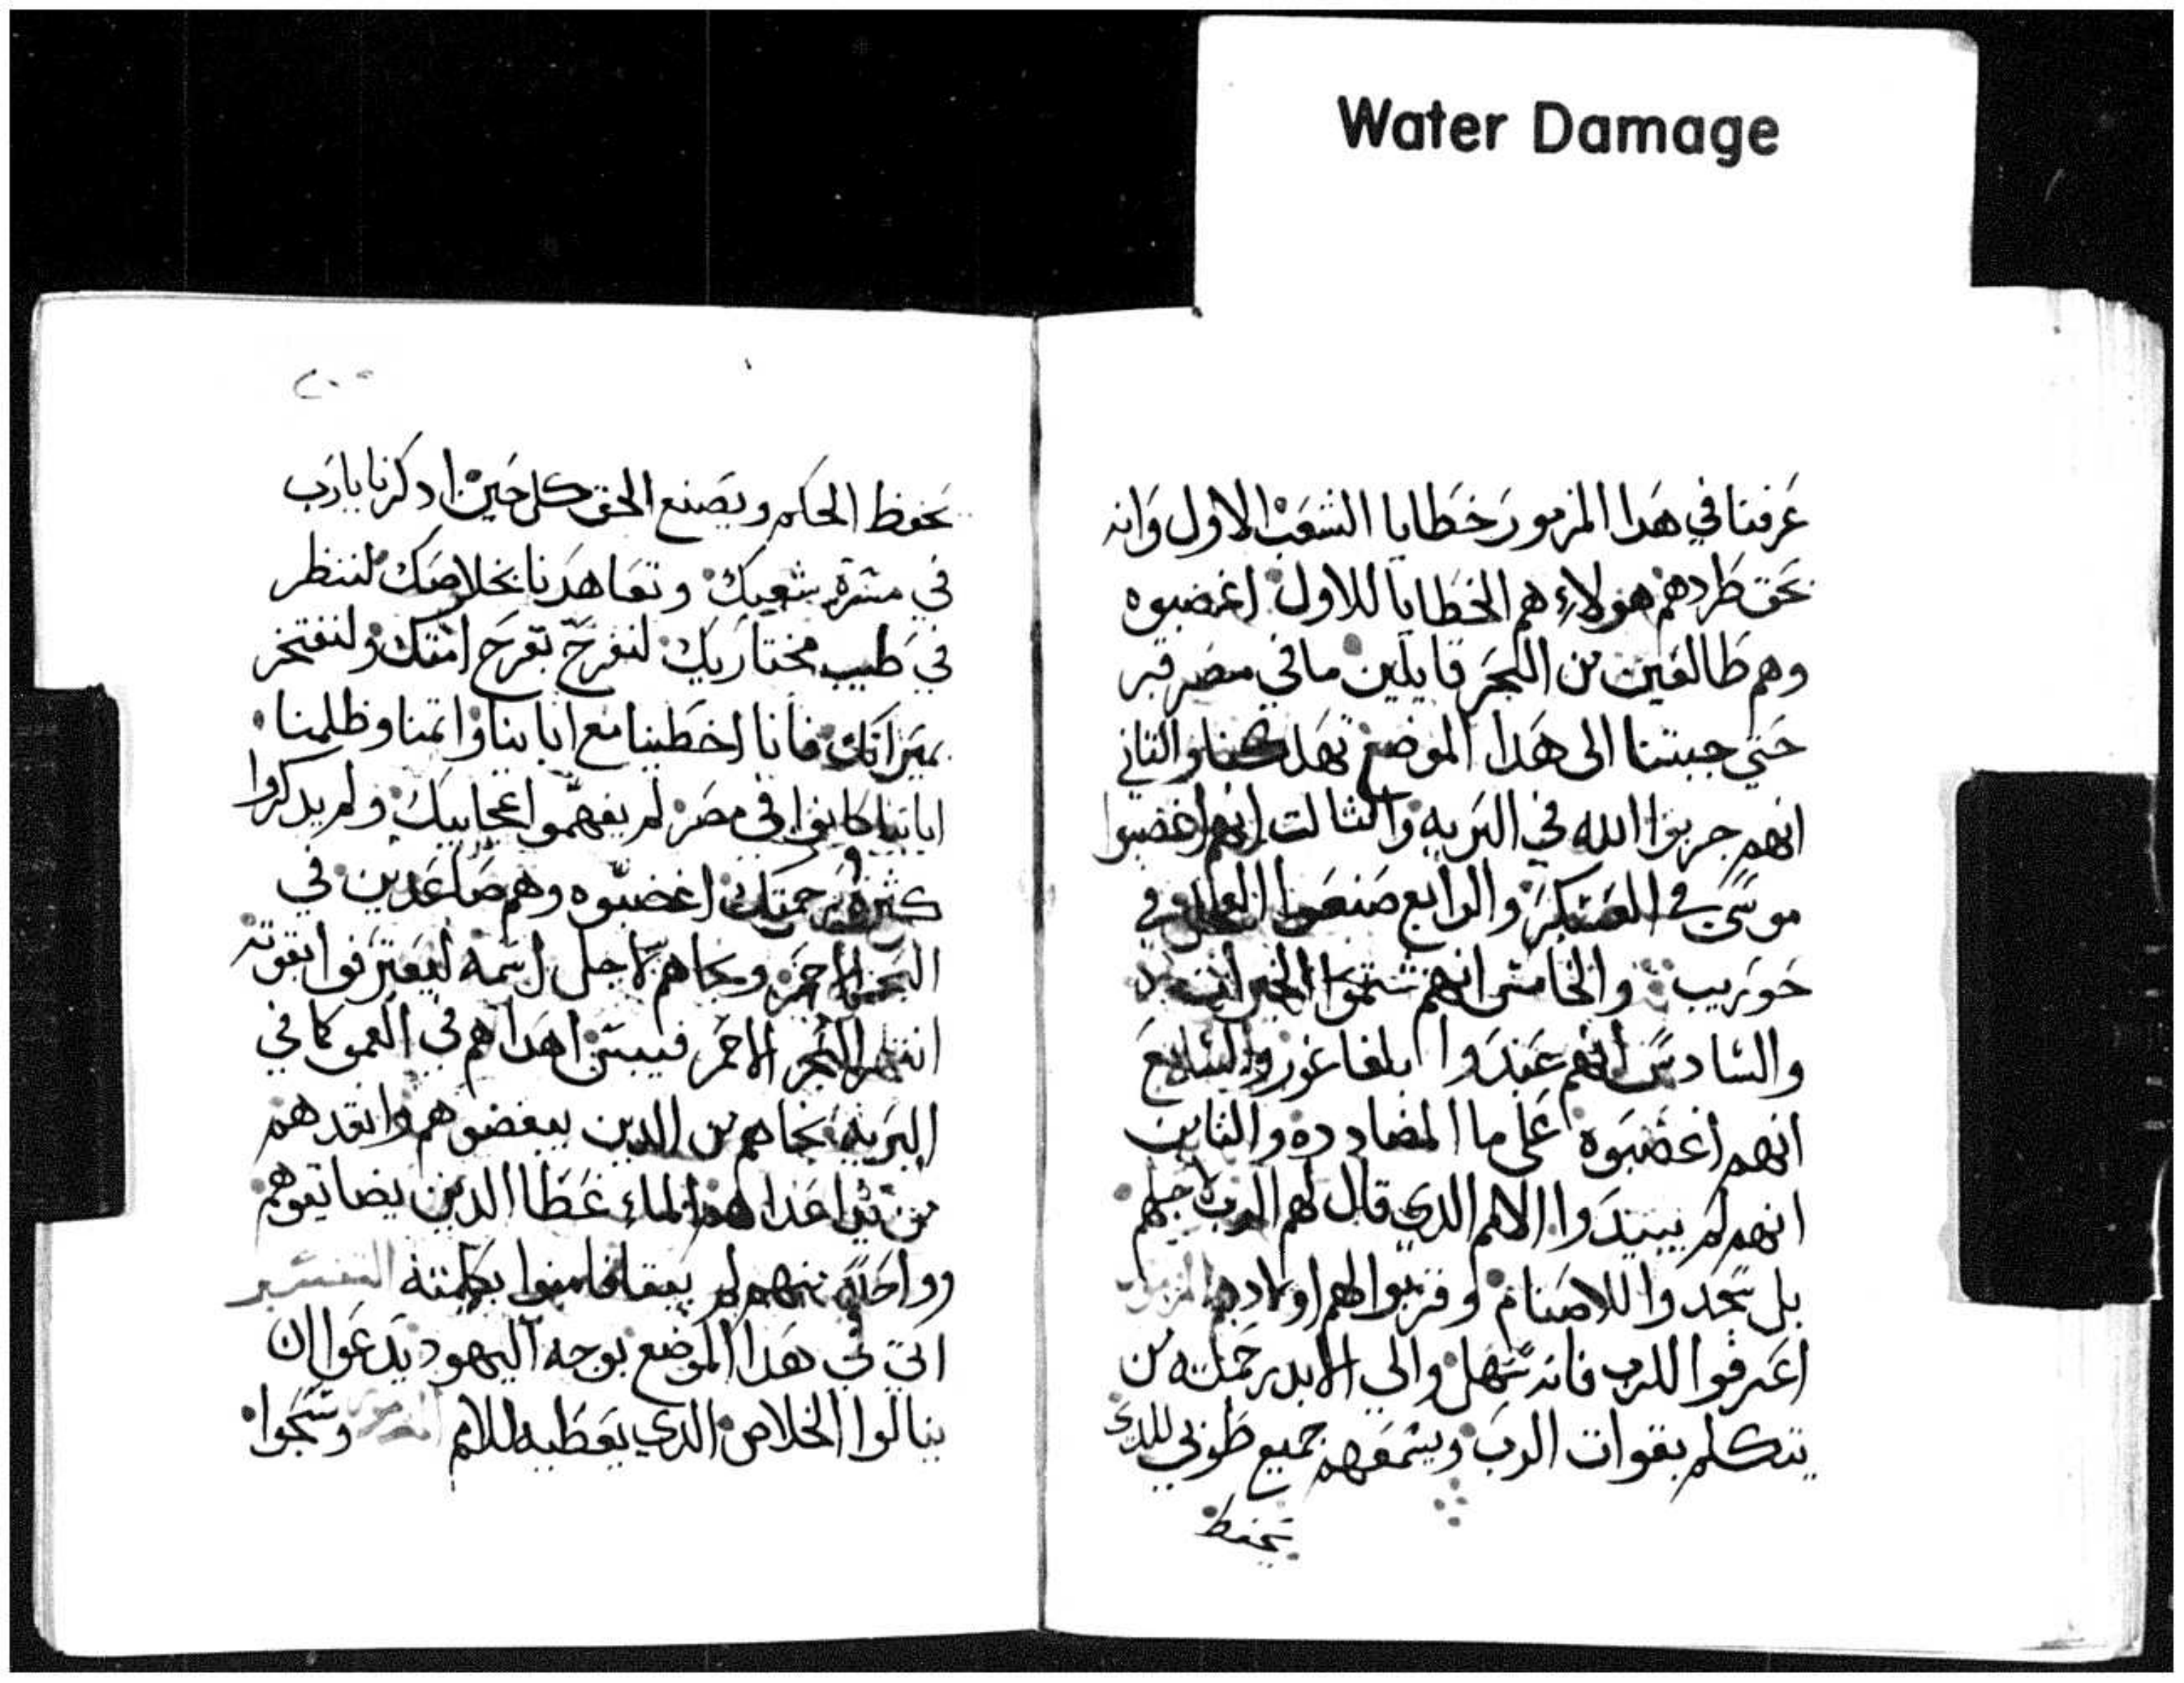 Water Damage
عرفنا في هدا المزمور خطايا الشعب الاول وانه
بحق طردهم هولاء هم الخطايا للاول اغضبوه
وهم طالعين من البحر قايلين مافي مصر قبر
حتي جبتنا الى هدا الموضع والتاني
انهم جربوا الله في البريه والتالت انهم اغضبوا
موسى في العسكر والرابع صنعوا العجل في
حوريب والخامس انهم شتموا
والسادس انهم عبدوا ابلفاغور والسابع
انهم اغضبوه على ما المضادده والتامن
انهم لم يبيدوا الامم الدي قال لهم الرب لاجلهم
بل سجدوا للاصنام وقربوا لهم اولادهم المزمور
اعترفوا للرب فانه سهل والي الابد رحمته من
يتكلم بقوات الرب ويسمعهم جميع طوبي للدي
يحفظ
٢٠٥
يحفظ الحكم ويصنع الحق كل حين ادكرنا يارب
في مسرة شعبك وتعاهدنا بخلاصك لننظر
في طيب مختاريك لنفرح بفرح امتك ولنفتخر
بميراتك فاننا اخطينا مع ابابنا واتمنا وظلمنا
ابابنا كانوا في مصر لم يفهموا عجايبك ولم يدكروا
كثرة رحمتك اغضبوه وهم صاعدين في
البحر الاحمر ونجاهم لاجل اسمه ليعترفوا بقوته
انتهر البحر الاحمر فيبس اهداهم في العمق كما في
البريه نجاهم من الدين يبغضوهم وانقدهم
من يد اعداهم الماء غطا الدين يضايقوهم
وواحد منهم لم يبقا فامنوا بكلمته التفسير
اتي في هدا الموضع بوجه اليهود يدعوا ان
ينالوا الخلاص الدي يعطيه للامم المزمور وسبحوا